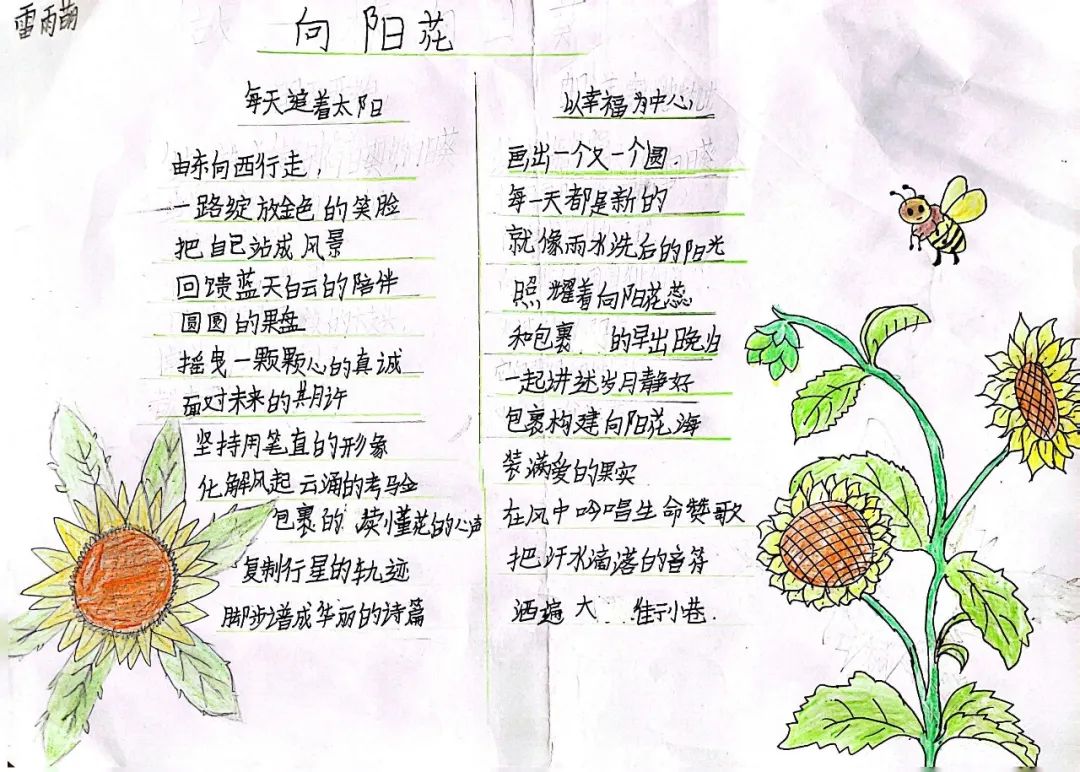 雷雨萌
向阳花
每天追着太阳
由东向西行走，
一路绽放金色的笑脸
把自己站成风景
回馈蓝天白云的陪伴
圆圆的果盘
摇曳一颗颗心的真诚
面对未来的期许
坚持用笔直的形象
化解风起云涌的考验
包裹的 读懂花的心声
复制行星的轨迹
脚步谱成华丽的诗篇
以幸福为中心，
画出一个又一个圆.
每一天都是新的
就像雨水洗后的阳光
照耀着向阳花蕊
和包裹..的早出晚归
一起讲述岁月静好
包裹构建向阳花海
装满爱的果实
在风中吟唱生命赞歌
把汗水滴落的音符
洒遍大...街小巷.